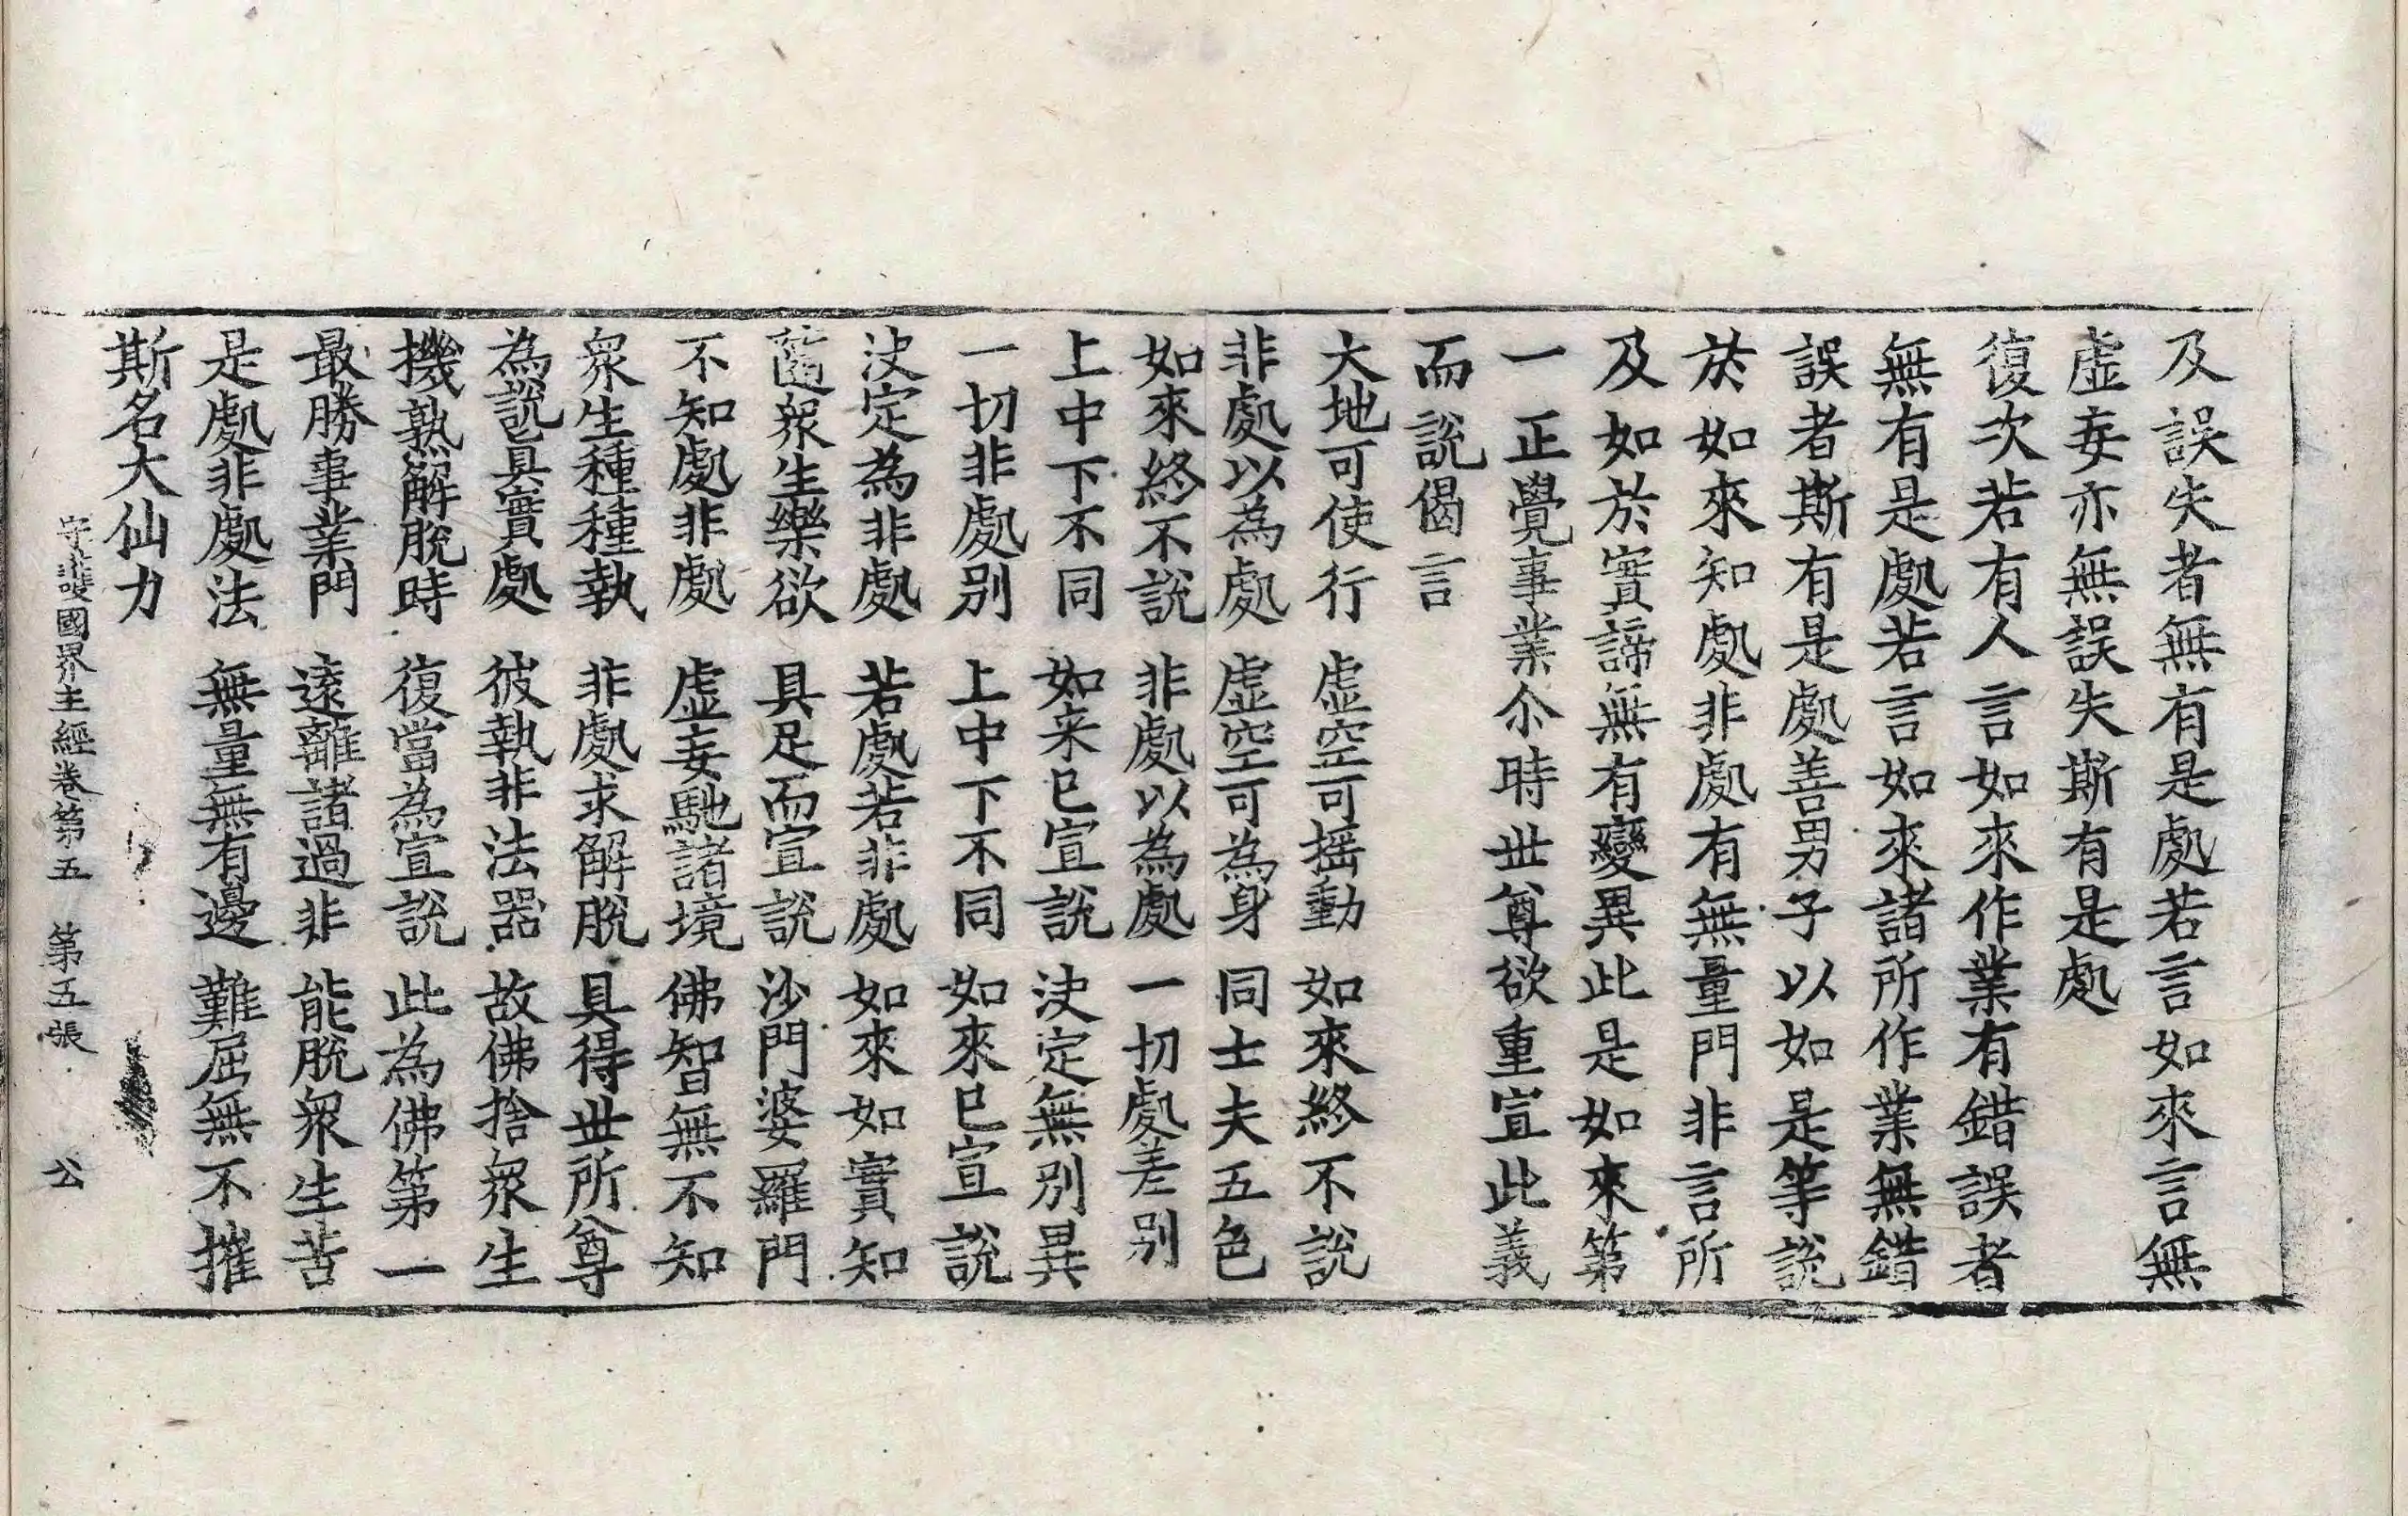 及誤失者無有是處若言如來言無
虛妄亦無誤失斯有是處
復次若有人言如來作業有錯誤者
無有是處若言如來諸所作業無錯
誤者斯有是處善男子以如是等說
於如來知處非處有無量門非言所
及如於實諦無有變異此是如來第
一正覺事業尒時世尊欲重宣此義
而說偈言
大地可使行　虛空可搖動　如來終不說
非處以為處　虛空可為身　同士夫五色
如來終不說　非處以為處　一切處差别
上中下不同　如来已宣說　決定無別異
一切非處别　上中下不同　如來已宣說
決定為非處　若處若非處　如來如實知
隨衆生樂欲　具足而宣說　沙門婆羅門
不知處非處　虛妄馳諸境　佛智無不知
衆生種種執　非處求解脫　具得世所尊
為說真實處　彼執非法器　故佛捨衆生
機熟解脫時　復當為宣說　此為佛第一
最勝事業門　遠離諸過非　能脫衆生苦
是處非處法　無量無有邊　難屈無不摧
斯名大仙力
守護國界主經卷第五　第五張　公